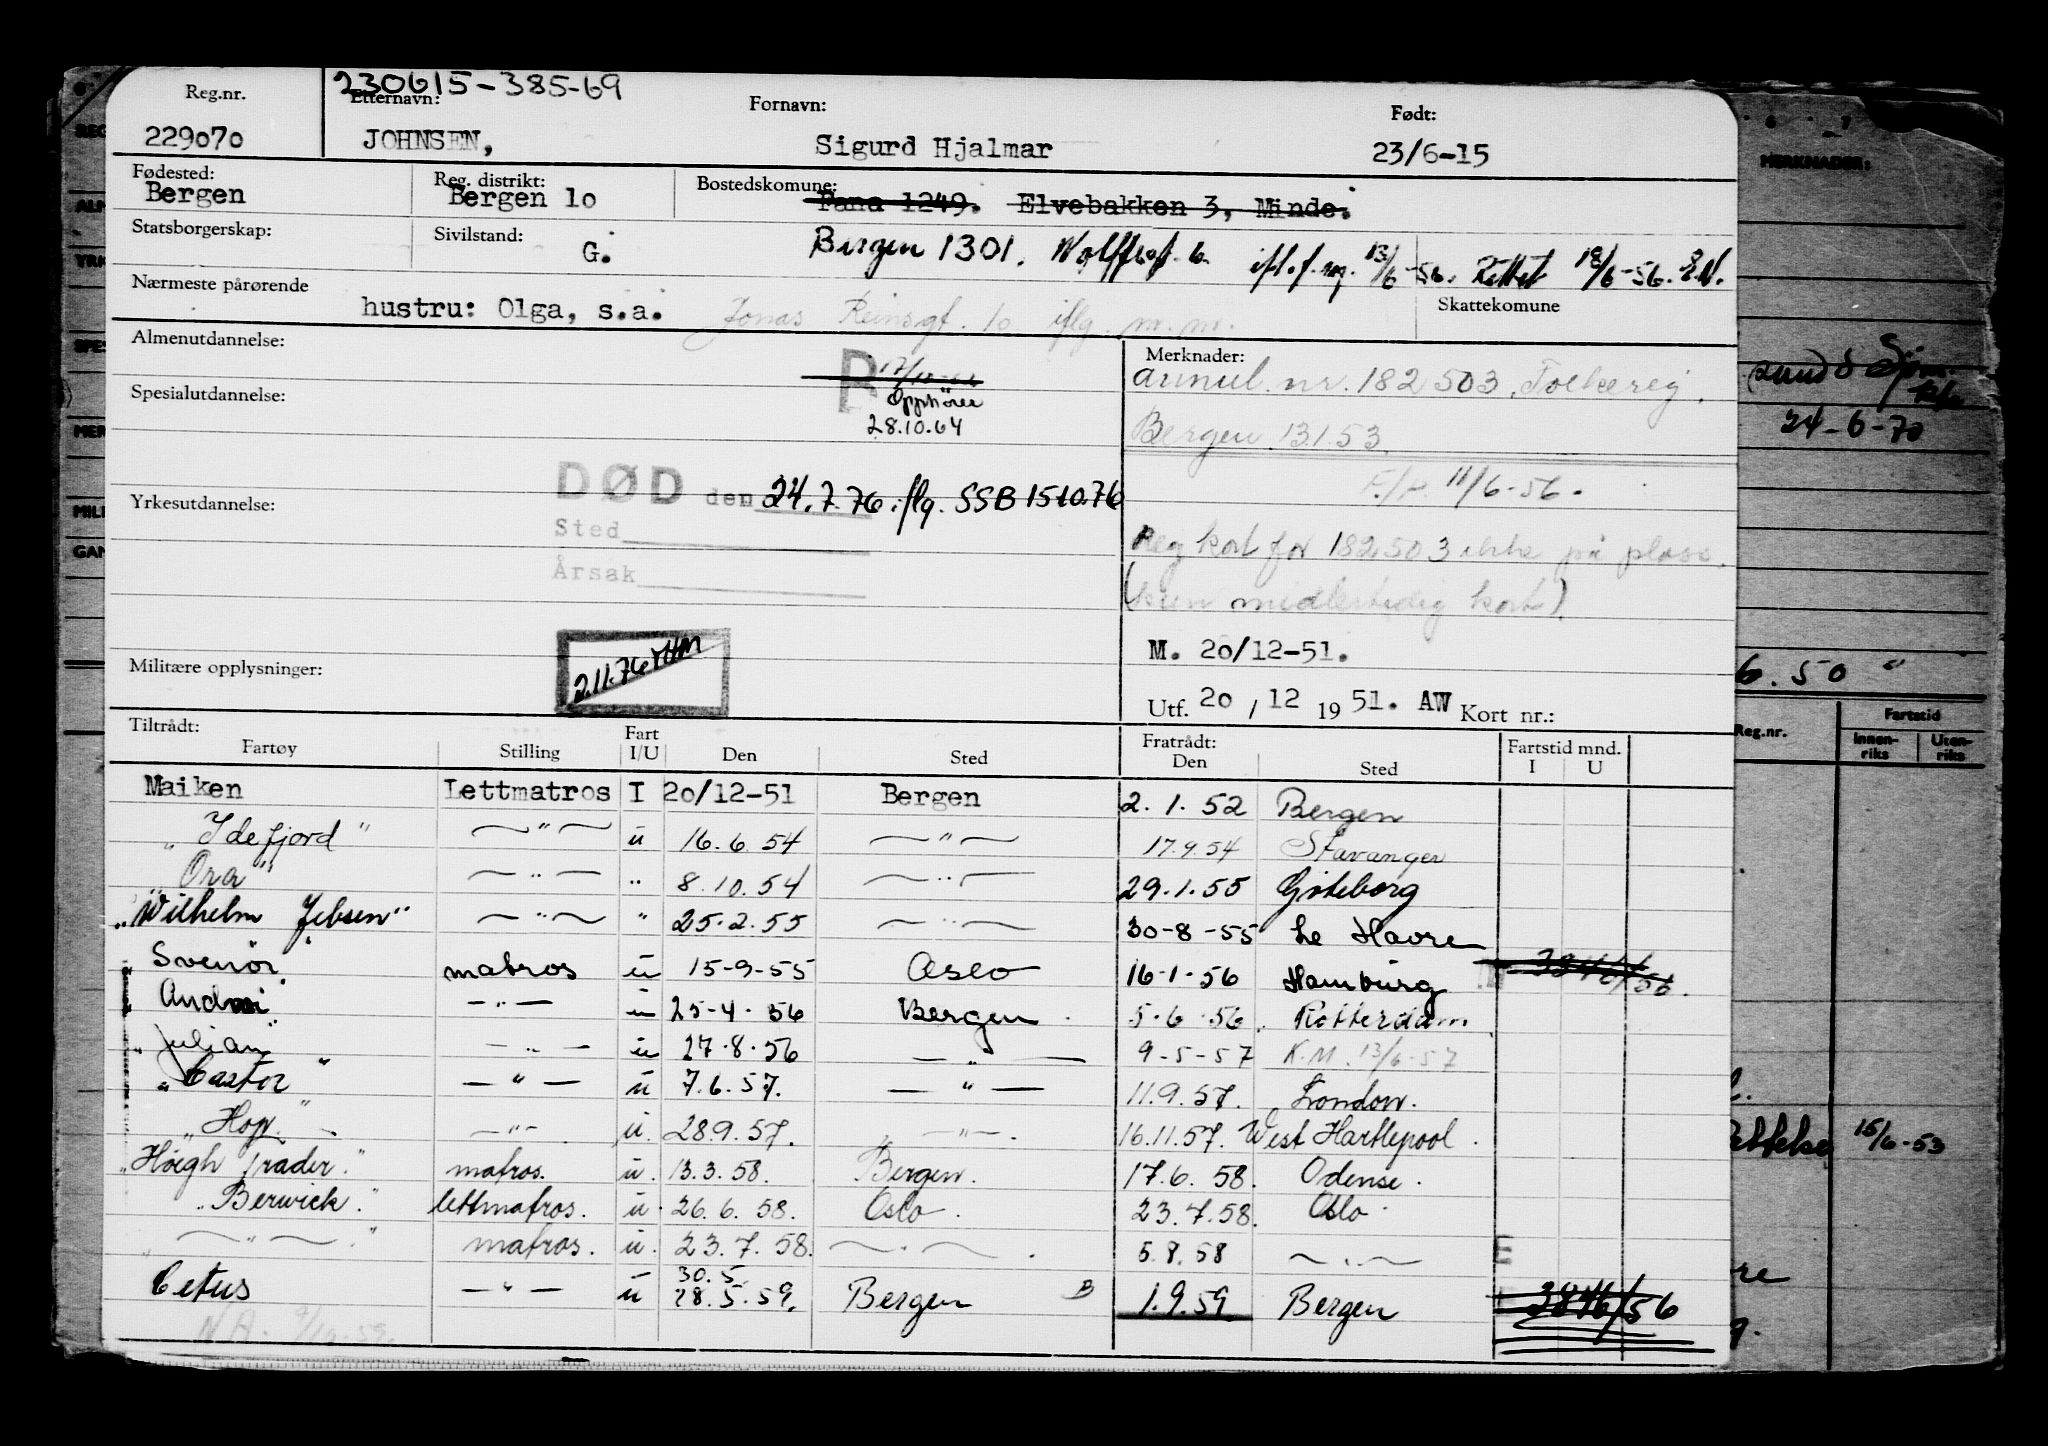 230615-385-69
Reg.nr. Etternavn: Fornavn: Født:
229070 JOHNSEN, Sigurd Hjalmar 23/6-15
Fødested: Reg. distrikt: Bostedskomune:
Bergen Bergen 10 Fana 1249. Elvebakken 3, Minde.
Statsborgerskap: Sivilstand: G. Bergen 1301. 13/6-56. Rettet 18/6-56.
Nærmeste pårørende Skattekomune
hustru: Olga, s.a. Jonas Reinsgt. 10 iflg. m.m.
Almenutdannelse: Merknader:
R Annul. nr. 182503. Folkereg.
Spesialutdannelse: Opphører
28.10.64 Bergen 13.1.53.
11/6-56.
DØD den 24.7.76 iflg. SSB 15.10.76
Yrkesutdannelse:
Sted Reg kort for 182503 ikke på plass.
Årsak (kun midlertidig kort)
M. 20/12-51.
Militære opplysninger: 2.11.76
Utf. 20 / 12 19 51. AW Kort nr.:
Tiltrådt: Fratrådt:
Fartøy Stilling Fart I/U Den Sted Den Sted Fartstid mnd. I U
Maiken Lettmatros I 20/12-51 Bergen 2.1.52 Bergen
"Idefjord" — " — u 16.6.54 — " — 17.9.54 Stavanger
"Ora" — " — " 8.10.54 — " — 29.1.55 Göteborg
"Wilhelm Jebsen" — " — " 25.2.55 — " — 30-8-55 Le Havre
Svenör matros u 15-9-55 Oslo 16-1-56 Hamburg
— " — u 25-4-56 Bergen 5-6-56. Rotterdam
"Julian" — " — u 27.8.56 — " — 9-5-57 K.M. 13/6-57
"Castor" — " — u 7.6.57. — " — 11.9.57. London.
"Hop" — " — u. 28.9.57. — " — 16.11.57. West Hartlepool.
"Höegh Trader." matros. u. 13.3.58. Bergen. 17.6.58. Odense.
"Berwick." lettmatros. u. 26.6.58. Oslo. 23.7.58. Oslo.
" — " — " matros. u. 23.7.58. — " — 5.8.58 — " — E
30.5.
Cetus — " — u 28.5.59. Bergen B 1.9.59 Bergen 3846/56
MERKNADER:
24-6-70
6.50 "
Reg.nr. Fartstid
Innenriks Utenriks
15/6-53